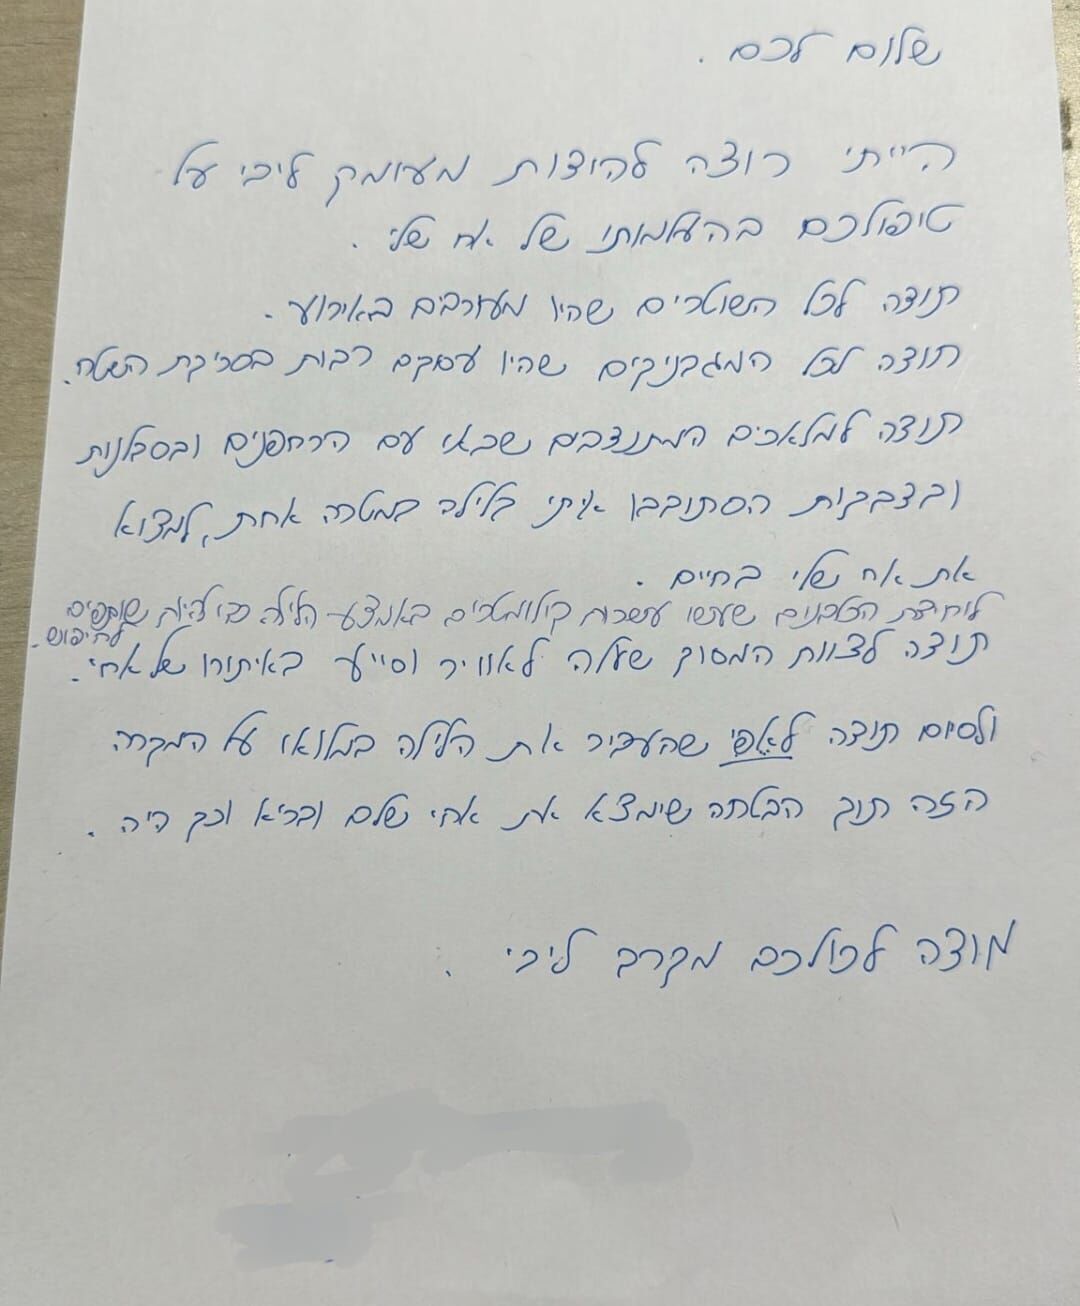 שלום לכם .
הייתי רוצה להודות מעומק ליבי על
טיפולכם בהעלמותו של אח שלי .
תודה לכל השוטרים שהיו מעורבים באירוע .
תודה לכל המגבניקים שהיו עסקם רבות בסריקת השטח .
תודה למלאכים המתנדבים שבאו עם הרחפנים ובסבלנות
ובדבקות הסתובבו איתי בלילה במטרה אחת, למצוא
את אח שלי בחיים .
ליחידת הטרקטורונים שעשו עשרות קילומטרים באמצע הלילה כדי להיות שותפים
לחיפוש .
תודה לצוות המסוק שעלה לאוויר וסייע באיתורו של אחי .
ולסיום תודה לאפי שהעביר את הלילה במלואו על המקרה
הזה תוך הבטחה שימצא את אחי שלם ובריא וכך היה .
תודה לכולכם מקרב ליבי .